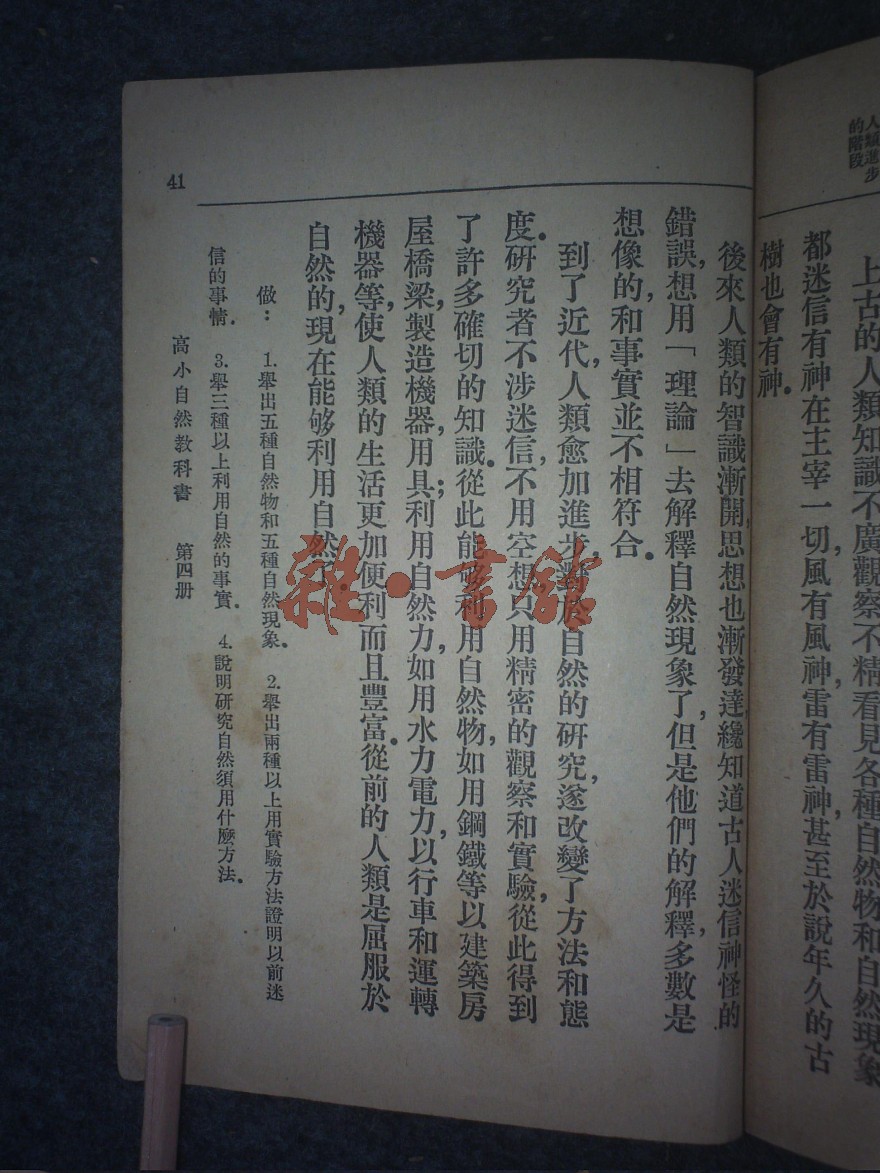 人類進步
的階段
上古的人類知識不廣觀察不精看見各種自然物和自然現象
都迷信有神在主宰一切,風有風神,雷有雷神,甚至於說年久的古
樹也會有神.
後來人類的智識漸開,思想也漸發達,纔知道古人迷信神怪的
錯誤,想用「理論」去解釋自然現象了,但是他們的解釋,多數是
想像的,和事實並不相符合.
到了近代,人類愈加進步,對於自然的研究,遂改變了方法和態
度.研究者不涉迷信,不用空想,只用精密的觀察和實驗,從此得到
了許多確切的知識.從此能够利用自然物,如用鋼鐵等以建築房
屋橋梁,製造機器,用具;利用自然力,如用水力電力,以行車和運轉
機器等,使人類的生活更加便利而且豐富.從前的人類是屈服於
自然的,現在能够利用自然了.
做: 1.舉出五種自然物和五種自然現象. 2.舉出兩種以上用實驗方法證明以前迷
信的事情. 3.舉三種以上利用自然的事實. 4.說明研究自然須用什麼方法.
高小自然教科書 第四册
41
雜·書館